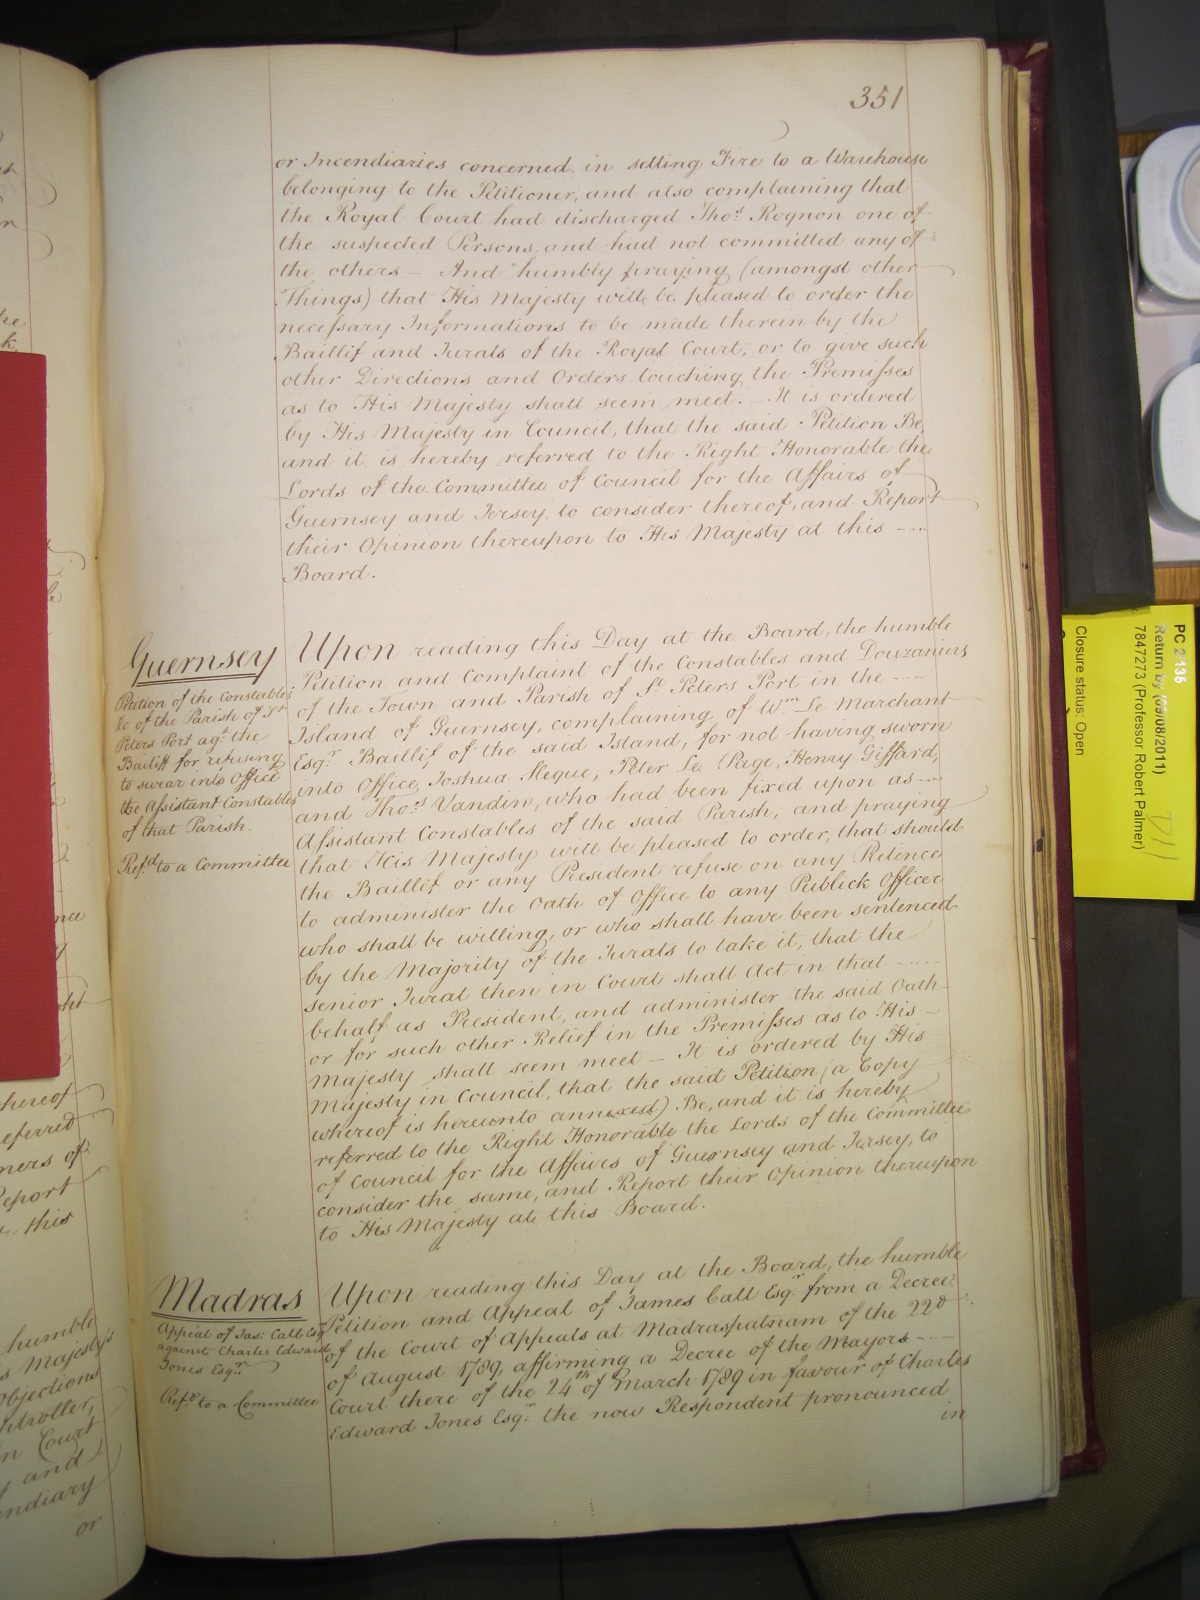 351
or Incendiaries concerned in setting Fire to a Warehouse
belonging to the Petitioner, and also complaining that
the Royal Court had discharged Tho.s Rognon one of
the suspected Persons, and had not committed any of
the others — And humbly praying (amongst other
Things) that His Majesty will be pleased to order the
necessary Informations to be made therein by the
Baillif and Jurats of the Royal Court, or to give such
other Directions and Orders touching the Premisses
as to His Majesty shall seem meet. — It is ordered
by His Majesty in Council, that the said Petition Be,
and it is hereby referred to the Right Honorable the
Lords of the Committee of Council for the Affairs of
Guernsey and Jersey, to consider thereof, and Report
their Opinion thereupon to His Majesty at this ----
Board.
Guernsey
Petition of the Constables
&c of the Parish of St.
Peters Port ag.t the
Bailiff for refusing
to swear into Office
the Assistant Constables
of that Parish.
Ref.d to a Committee
Upon reading this Day at the Board, the humble
Petition and Complaint of the Constables and Douzaniers
of the Town and Parish of St. Peters Port in the ----
Island of Guernsey, complaining of W.m Le Marchant
Esq.r Baillif of the said Island, for not having sworn
into Office, Joshua Neque, Peter Le Page, Henry Giffard,
and Tho.s Vandin, who had been fixed upon as ---
Assistant Constables of the said Parish; and praying
that His Majesty will be pleased to order, that should
the Baillif or any President refuse on any Pretence
to administer the Oath of Office to any Publick Officer
who shall be willing, or who shall have been sentenced
by the Majority of the Jurats to take it, that the
senior Jurat then in Court shall Act in that -----
behalf as President, and administer the said Oath
or for such other Relief in the Premisses as to His —
Majesty shall seem meet — It is ordered by His
Majesty in Council, that the said Petition (a Copy
whereof is hereunto annexed) Be, and it is hereby
referred to the Right Honorable the Lords of the Committee
of Council for the Affairs of Guernsey and Jersey, to
consider the same, and Report their Opinion thereupon
to His Majesty at this Board.
Madras
Appeal of Jas: Call Esq
against Charles Edward
Jones Esq.r
Ref.d to a Committee
Upon reading this Day at the Board, the humble
Petition and Appeal of James Call Esq.r from a Decree
of the Court of Appeals at Madraspatnam of the 22d
of August 1789, affirming a Decree of the Mayors ----
Court there of the 24th of March 1789 in favour of Charles
Edward Jones Esq.r the now Respondent pronounced
in
hereof
eferred
ners of
Report
this
humble
Majesty's
Objections
ntroller,
in Court
and
endiary
or
PC 2/135
Return by (09/08/2011)
7847273 (Professor Robert Palmer)
Closure status: Open
D11